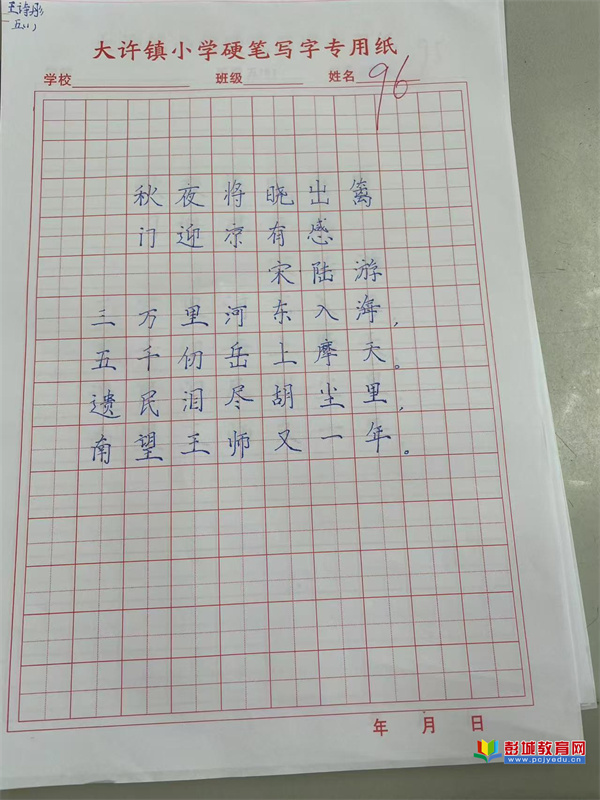 王诗彤
五(1)
大许镇小学硬笔写字专用纸
学校 班级 姓名
96
秋夜将晓出篱
门迎凉有感
宋陆游
三万里河东入海,
五千仞岳上摩天。
遗民泪尽胡尘里,
南望王师又一年。
年 月 日
彭城教育网
www.pcjyedu.cn